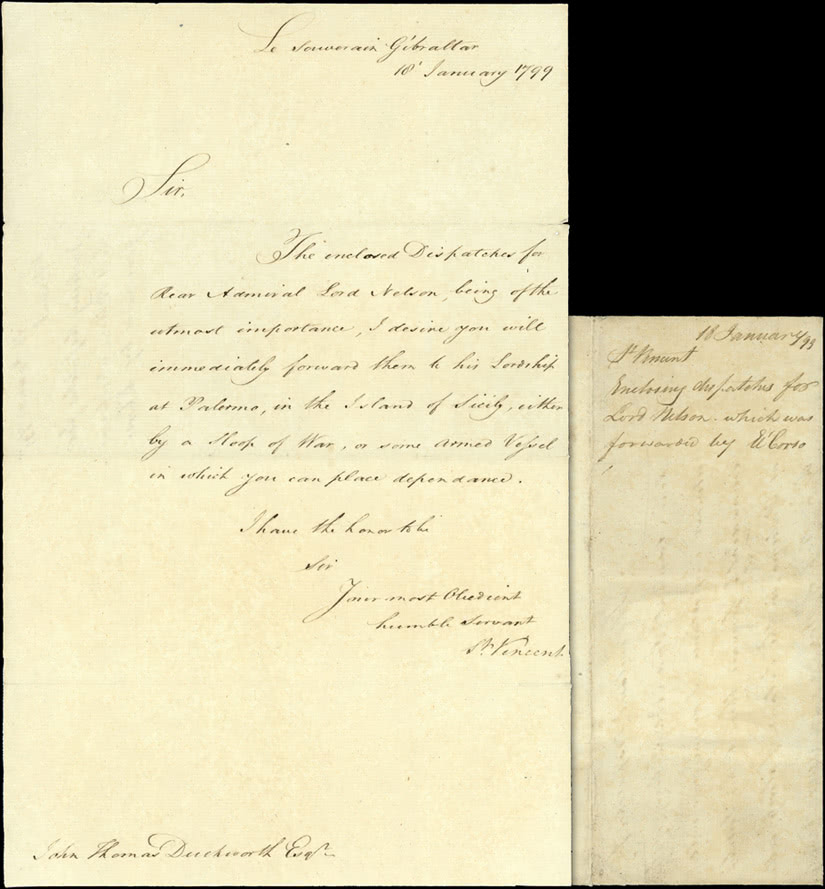 Le Souverain Gibraltar
18 January 1799
Sir,
The enclosed Dispatches for
Rear Admiral Lord Nelson, being of the
utmost importance, I desire you will
immediately forward them to his Lordship
at Palermo, in the Island of Sicily, either
by a Sloop of War, or some armed Vessel
in which you can place dependance.
I have the honor to be
Sir
Your most Obedient
humble Servant
St. Vincent.
John Thomas Duckworth Esqr.
18 January/99
St Vincent
Enclosing dispatches for
Lord Nelson which was
forwarded by El Corso